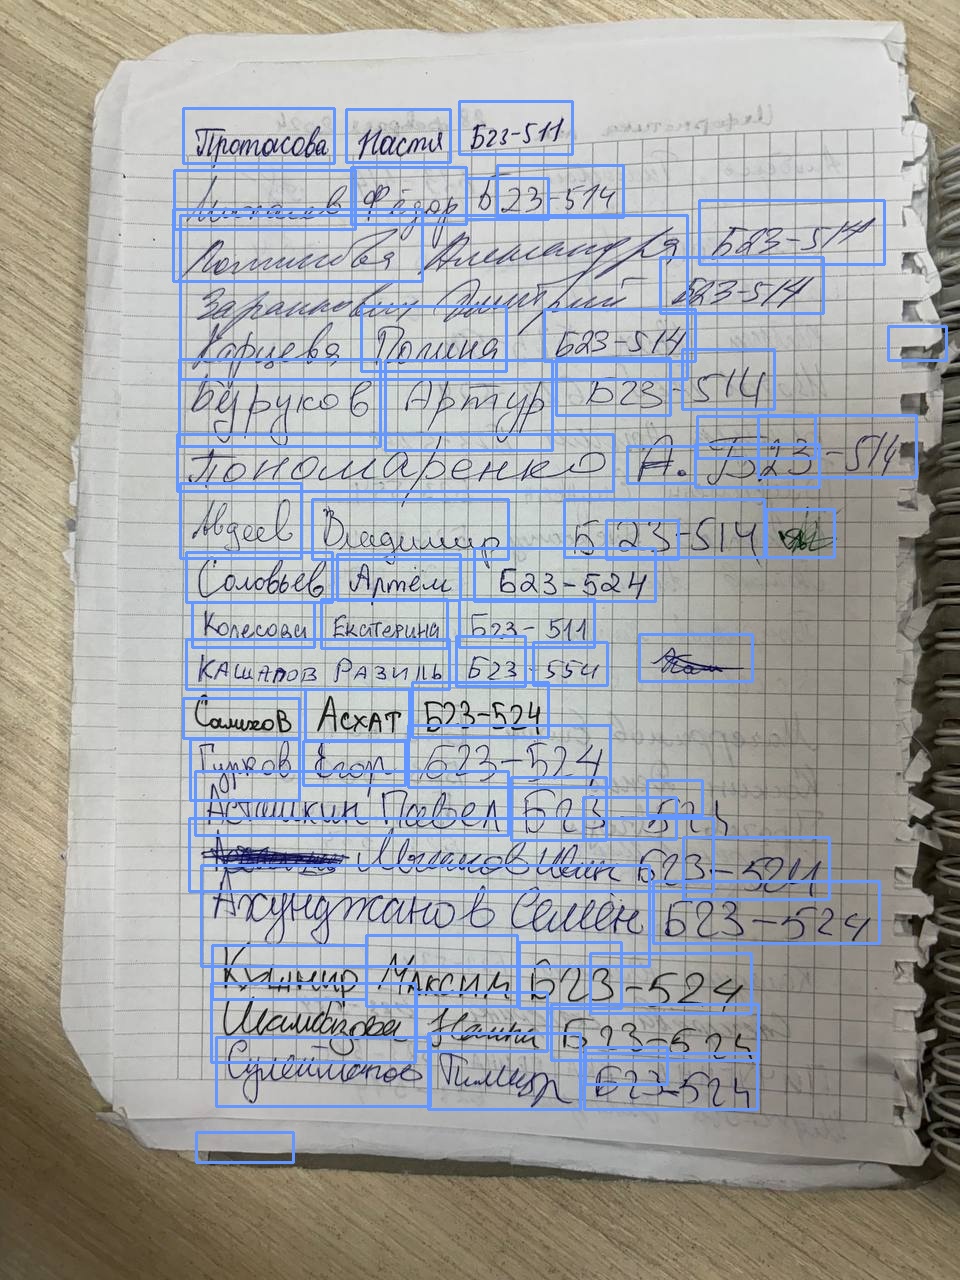 Протасова Настя Б23-511
Фёдор Б23-514
Александра Б23-514
Заранкович Дмитрий Б23-514
Карцева Полина Б23-514
Буруков Артур Б23-514
Пономаренко А. Б23-514
Авдеев Владимир Б23-514
Соловьев Артём Б23-524
Колесова Екатерина Б23-511
КАШАПОВ РАЗИЛЬ Б23-554
Салихов АСХАТ Б23-524
Гурков Егор Б23-524
Асташкин Павел Б23-524
Б23-524
Ахунджанов Семён Б23-524
Кушнир Максим Б23-524
Б23-524
Сулейманов Тимур Б23-524